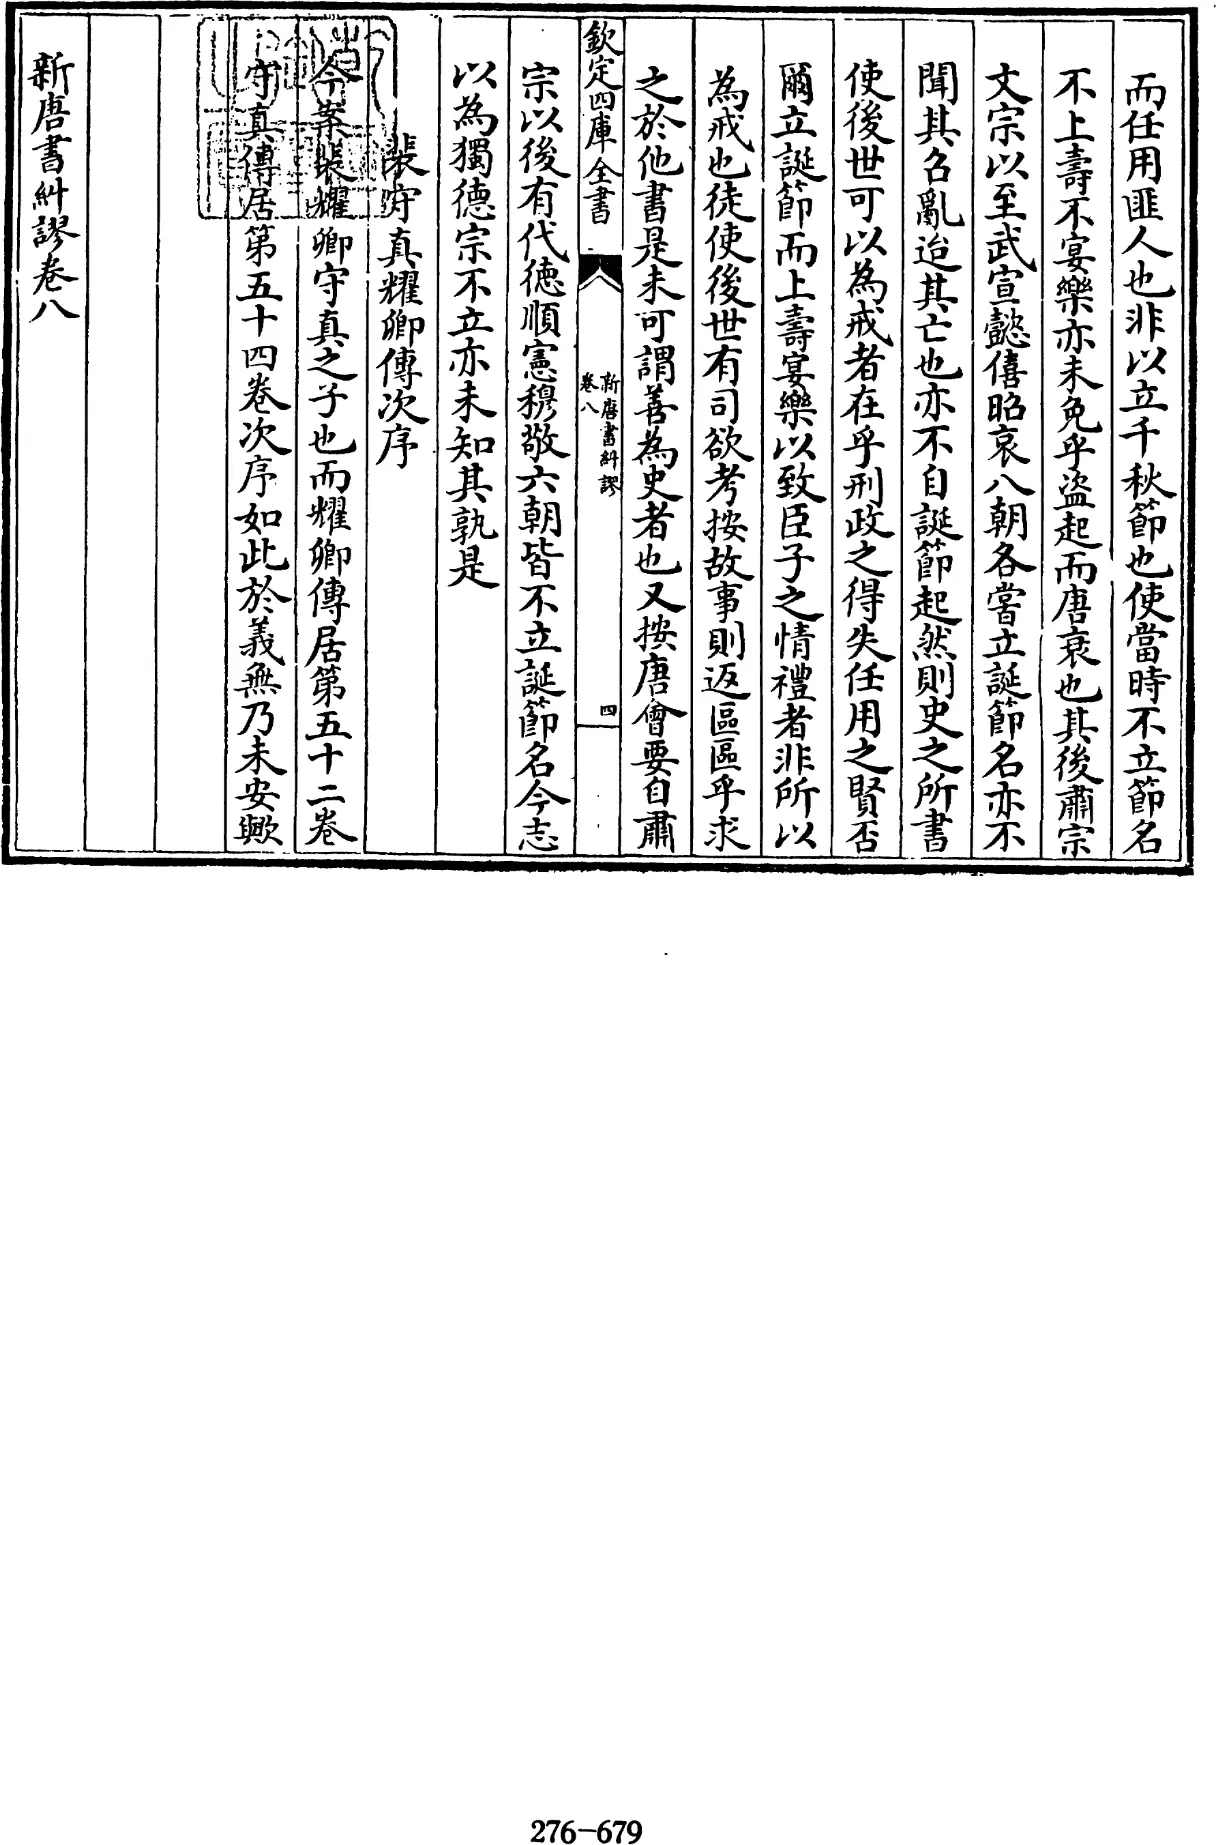 而任用匪人也非以立千秋節也使當時不立節名
不上壽不宴樂亦未免乎盜起而唐衰也其後肅宗
文宗以至武宣懿僖昭哀八朝各嘗立誕節名亦不
聞其名亂迨其亡也亦不自誕節起然則史之所書
使後世可以為戒者在乎刑政之得失任用之賢否
爾立誕節而上壽宴樂以致臣子之情禮者非所以
為戒也徒使後世有司欲考按故事則返區區乎求
之於他書是未可謂善為史者也又按唐會要自肅
欽定四庫全書
新唐書糾謬
卷八
四
宗以後有代德順憲穆敬六朝皆不立誕節名今志
以為獨德宗不立亦未知其孰是
裴守真耀卿傳次序
今案裴耀卿守真之子也而耀卿傳居第五十二卷
守真傳居第五十四卷次序如此於義無乃未安歟
新唐書糾謬卷八
276-679